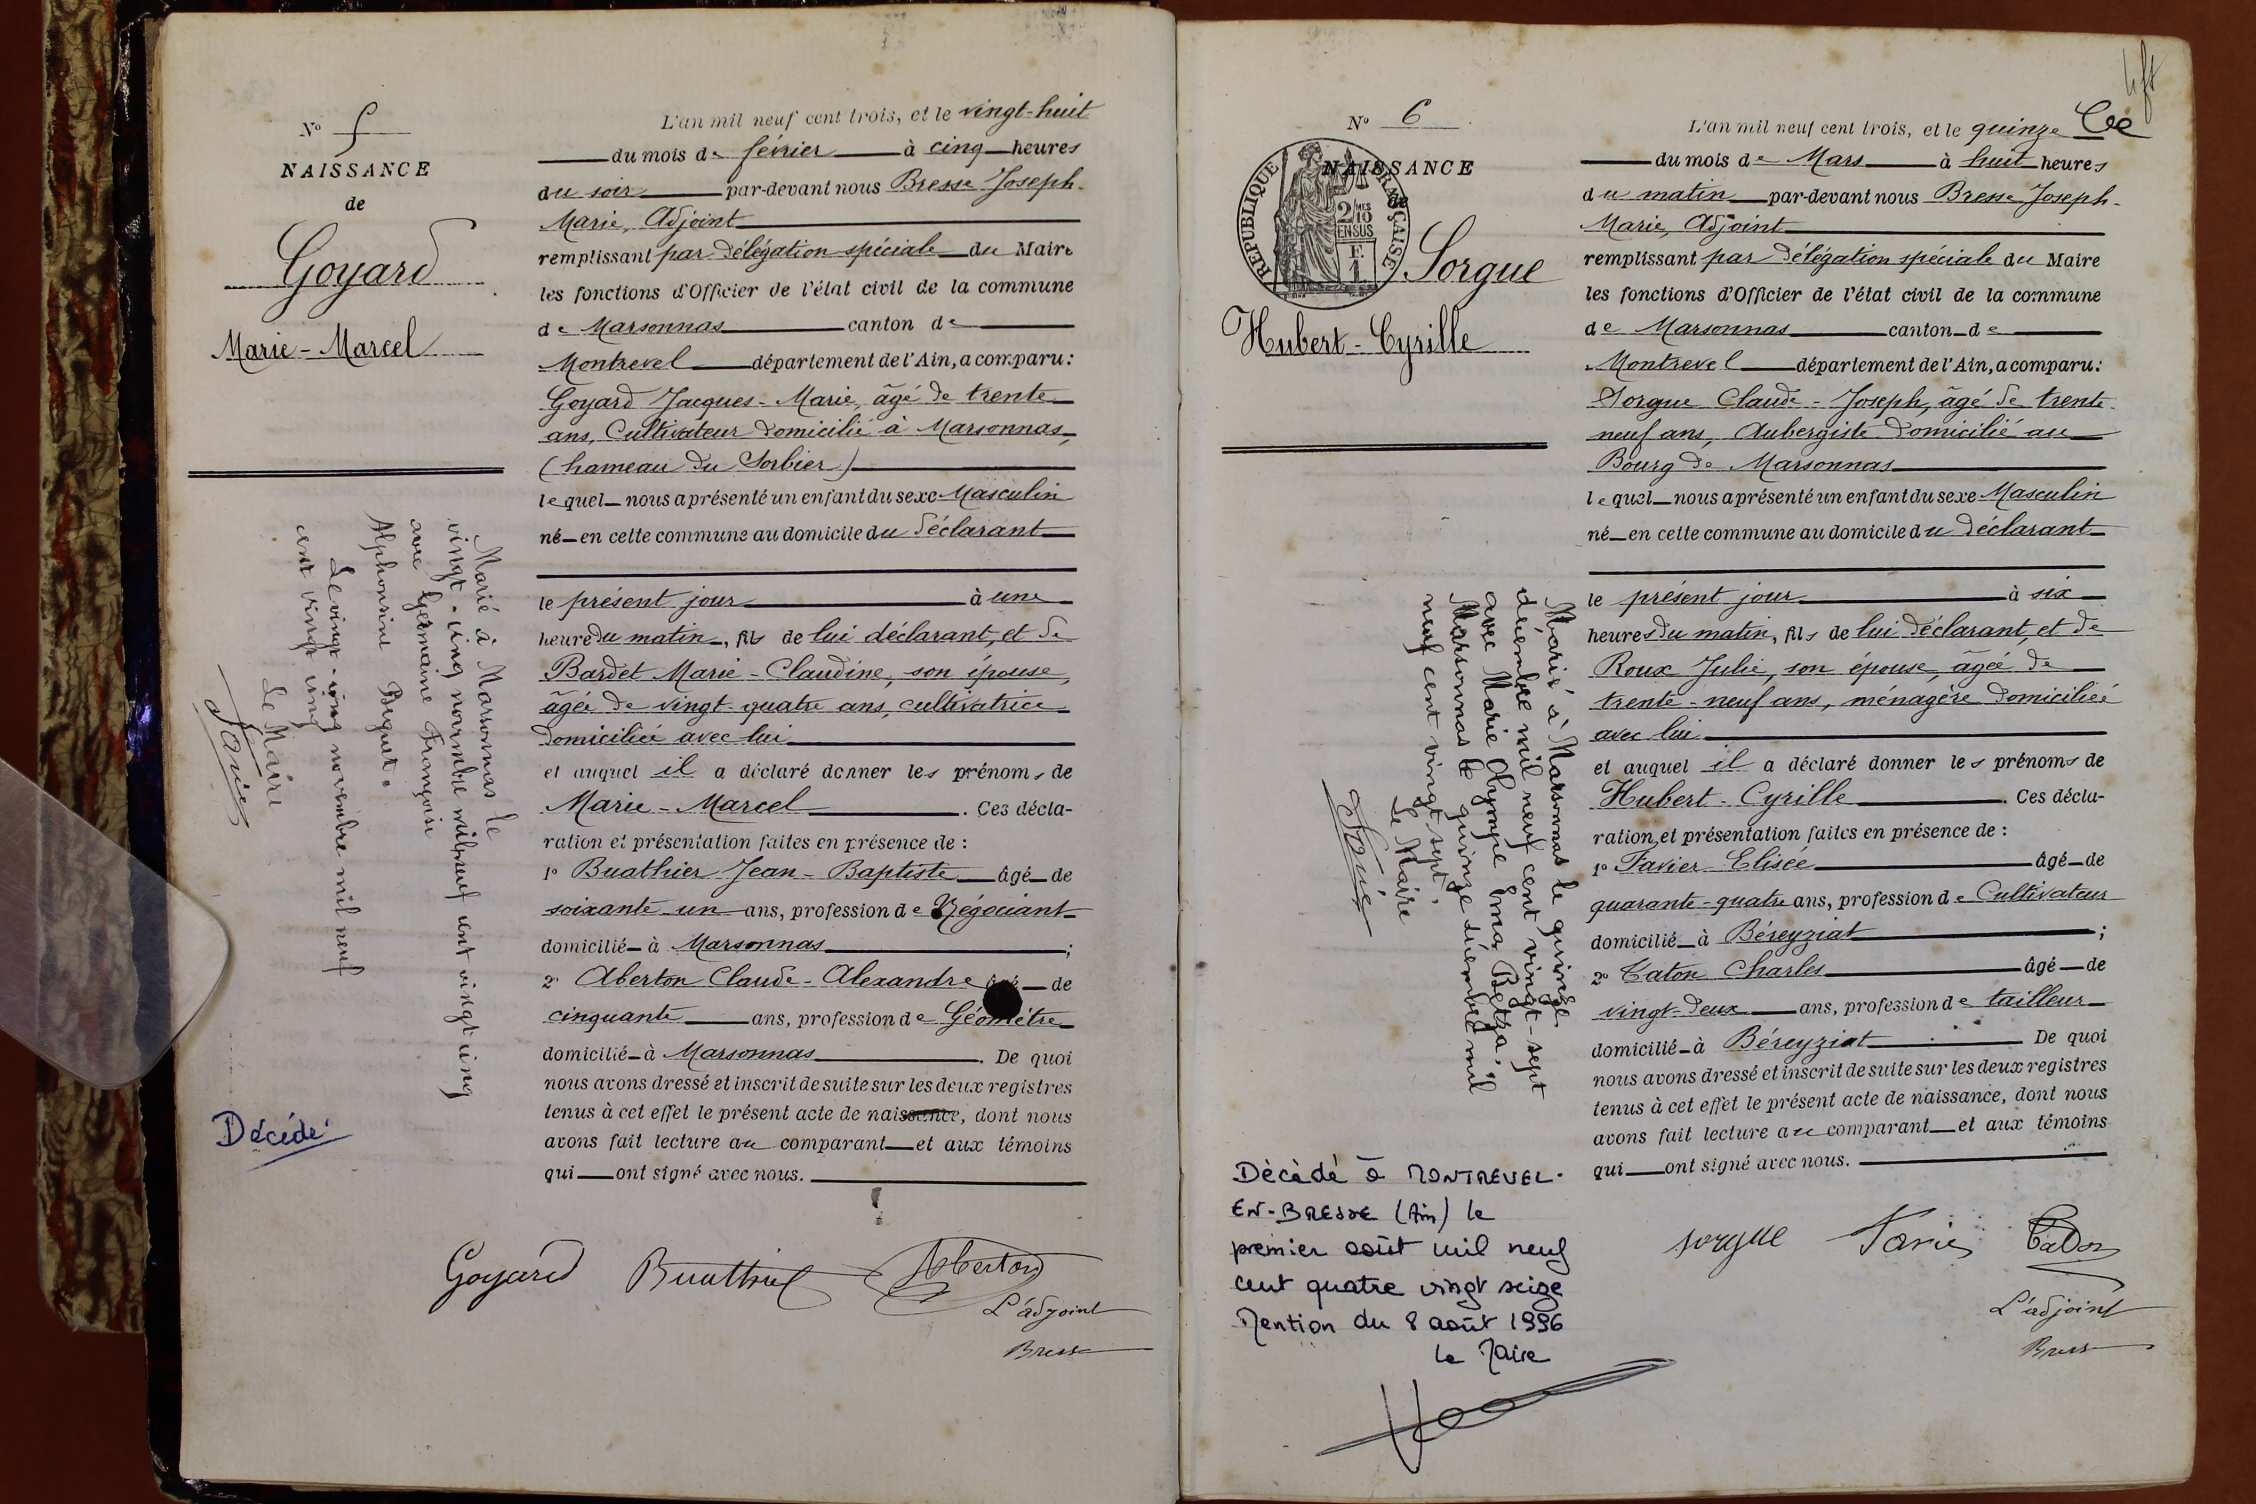 N° 5
NAISSANCE
de
Goyard
Marie-Marcel
Marié à Marsonnas le
vingt-cinq novembre mil neuf cent vingt cinq
avec Germaine Françoise
Alphonsine Piquet.
Le vingt-cinq novembre mil neuf
cent vingt cinq
Le Maire
Décédé
L'an mil neuf cent trois, et le vingt-huit
du mois de février à cinq heures
du soir par-devant nous Bresse Joseph-
Marie, Adjoint
remplissant par délégation spéciale du Maire
les fonctions d'Officier de l'état civil de la commune
de Marsonnas canton de
Montrevel département de l'Ain, a comparu:
Goyard Jacques-Marie, âgé de trente
ans, Cultivateur domicilié à Marsonnas,
(hameau du Sorbier)
lequel nous a présenté un enfant du sexe Masculin
né en cette commune au domicile du déclarant
le présent jour à une
heure du matin, fils de lui déclarant, et de
Bardet Marie-Claudine, son épouse,
âgée de vingt-quatre ans, cultivatrice
domiciliée avec lui
et auquel il a déclaré donner les prénoms de
Marie-Marcel. Ces décla-
ration et présentation faites en présence de :
1° Buathier Jean-Baptiste âgé de
soixante-un ans, profession de Négociant
domicilié à Marsonnas ;
2° Aberton Claude-Alexandre âgé de
cinquante ans, profession de Géomètre
domicilié à Marsonnas. De quoi
nous avons dressé et inscrit de suite sur les deux registres
tenus à cet effet le présent acte de naissance, dont nous
avons fait lecture au comparant et aux témoins
qui ont signé avec nous.
Goyard Buathier Aberton
L'adjoint
Bresse
N° 6
NAISSANCE
de
REPUBLIQUE FRANÇAISE
2 MES
10
EN SUS
F.
1
Sorgue
Hubert-Cyrille
Marié à Marsonnas le quinze
décembre mil neuf cent vingt-sept
avec Marie Olympe Ema Betza,
Marsonnas le quinze décembre mil
neuf cent vingt sept,
Le Maire
Décédé à MONTREVEL-
EN-BRESSE (Ain) le
premier août mil neuf
cent quatre vingt seize
Mention du 8 août 1996
Le Maire
L'an mil neuf cent trois, et le quinze
du mois de Mars à huit heures
du matin par-devant nous Bresse Joseph-
Marie, Adjoint
remplissant par délégation spéciale du Maire
les fonctions d'Officier de l'état civil de la commune
de Marsonnas canton de
Montrevel département de l'Ain, a comparu:
Sorgue Claude-Joseph, âgé de trente-
neuf ans, Aubergiste domicilié au
Bourg de Marsonnas
lequel nous a présenté un enfant du sexe Masculin
né en cette commune au domicile du déclarant
le présent jour à six
heures du matin, fils de lui déclarant, et de
Roux Julie, son épouse, âgée de
trente-neuf ans, ménagère domiciliée
avec lui
et auquel il a déclaré donner les prénoms de
Hubert-Cyrille. Ces décla-
ration et présentation faites en présence de :
1° Favier Elisée âgé de
quarante-quatre ans, profession de Cultivateur
domicilié à Béreyziat ;
2° Caton Charles âgé de
vingt-deux ans, profession de tailleur
domicilié à Béreyziat De quoi
nous avons dressé et inscrit de suite sur les deux registres
tenus à cet effet le présent acte de naissance, dont nous
avons fait lecture au comparant et aux témoins
qui ont signé avec nous.
Sorgue Favier Caton
L'adjoint
Bresse